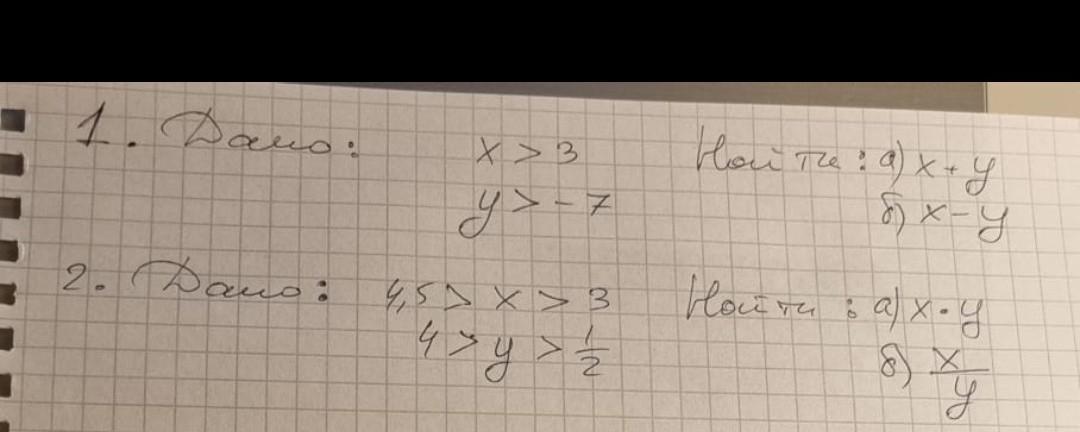 1. Дано: x > 3 Найти: а) x + y
y > - 7 б) x - y
2. Дано: 4,5 > x > 3 Найти: а) x · y
4 > y > 1/2 б) x/y